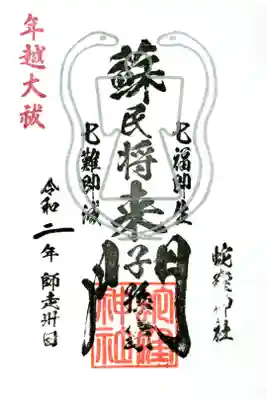 蛇窪神社
七福即生
蘇民将来子孫門
七難即滅
年越大祓
令和二年 師走卅日
蛇窪神社